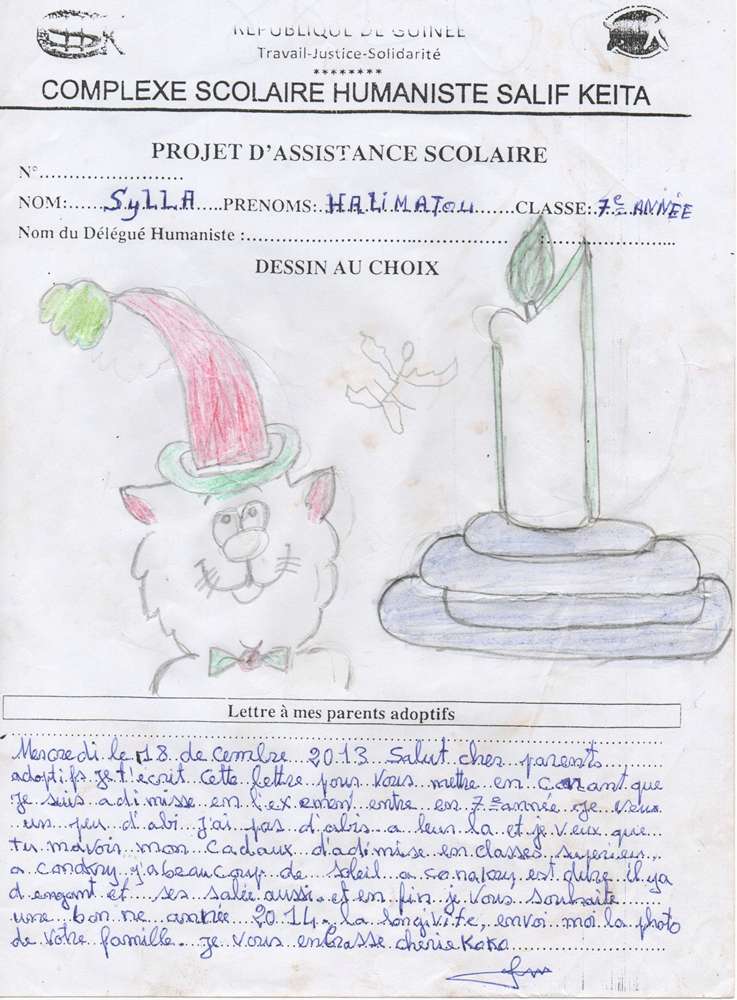 REPUBLIQUE DE GUINEE
Travail-Justice-Solidarité
********
COMPLEXE SCOLAIRE HUMANISTE SALIF KEITA
PROJET D'ASSISTANCE SCOLAIRE
N°........................
NOM:......SyLLA.....PRENOMS:.HALiMATou.......CLASSE:.7e ANNÉE
Nom du Délégué Humaniste :................................................................
DESSIN AU CHOIX
Lettre à mes parents adoptifs
Mercredi le 18 de cembre 2013 Salut cher parents
adoptifs je t'ecrit cette lettre pour vous metre en corant que
Je suis adimisse en l'exement entre en 7e année je veux
un peu d'abi j'ai pas d'abis a leur la et je veux que
tu mavoir mon cadaux d'adimise en classes superieurs
a conakry y'a beaucoup de soleil a conakry est dure il ya
d engant et ses salée aussi et en fin je vous souhaite
une bon ne année 2014 la longivite, envoi moi la photo
de votre famille je vous enbrasse cherie koko